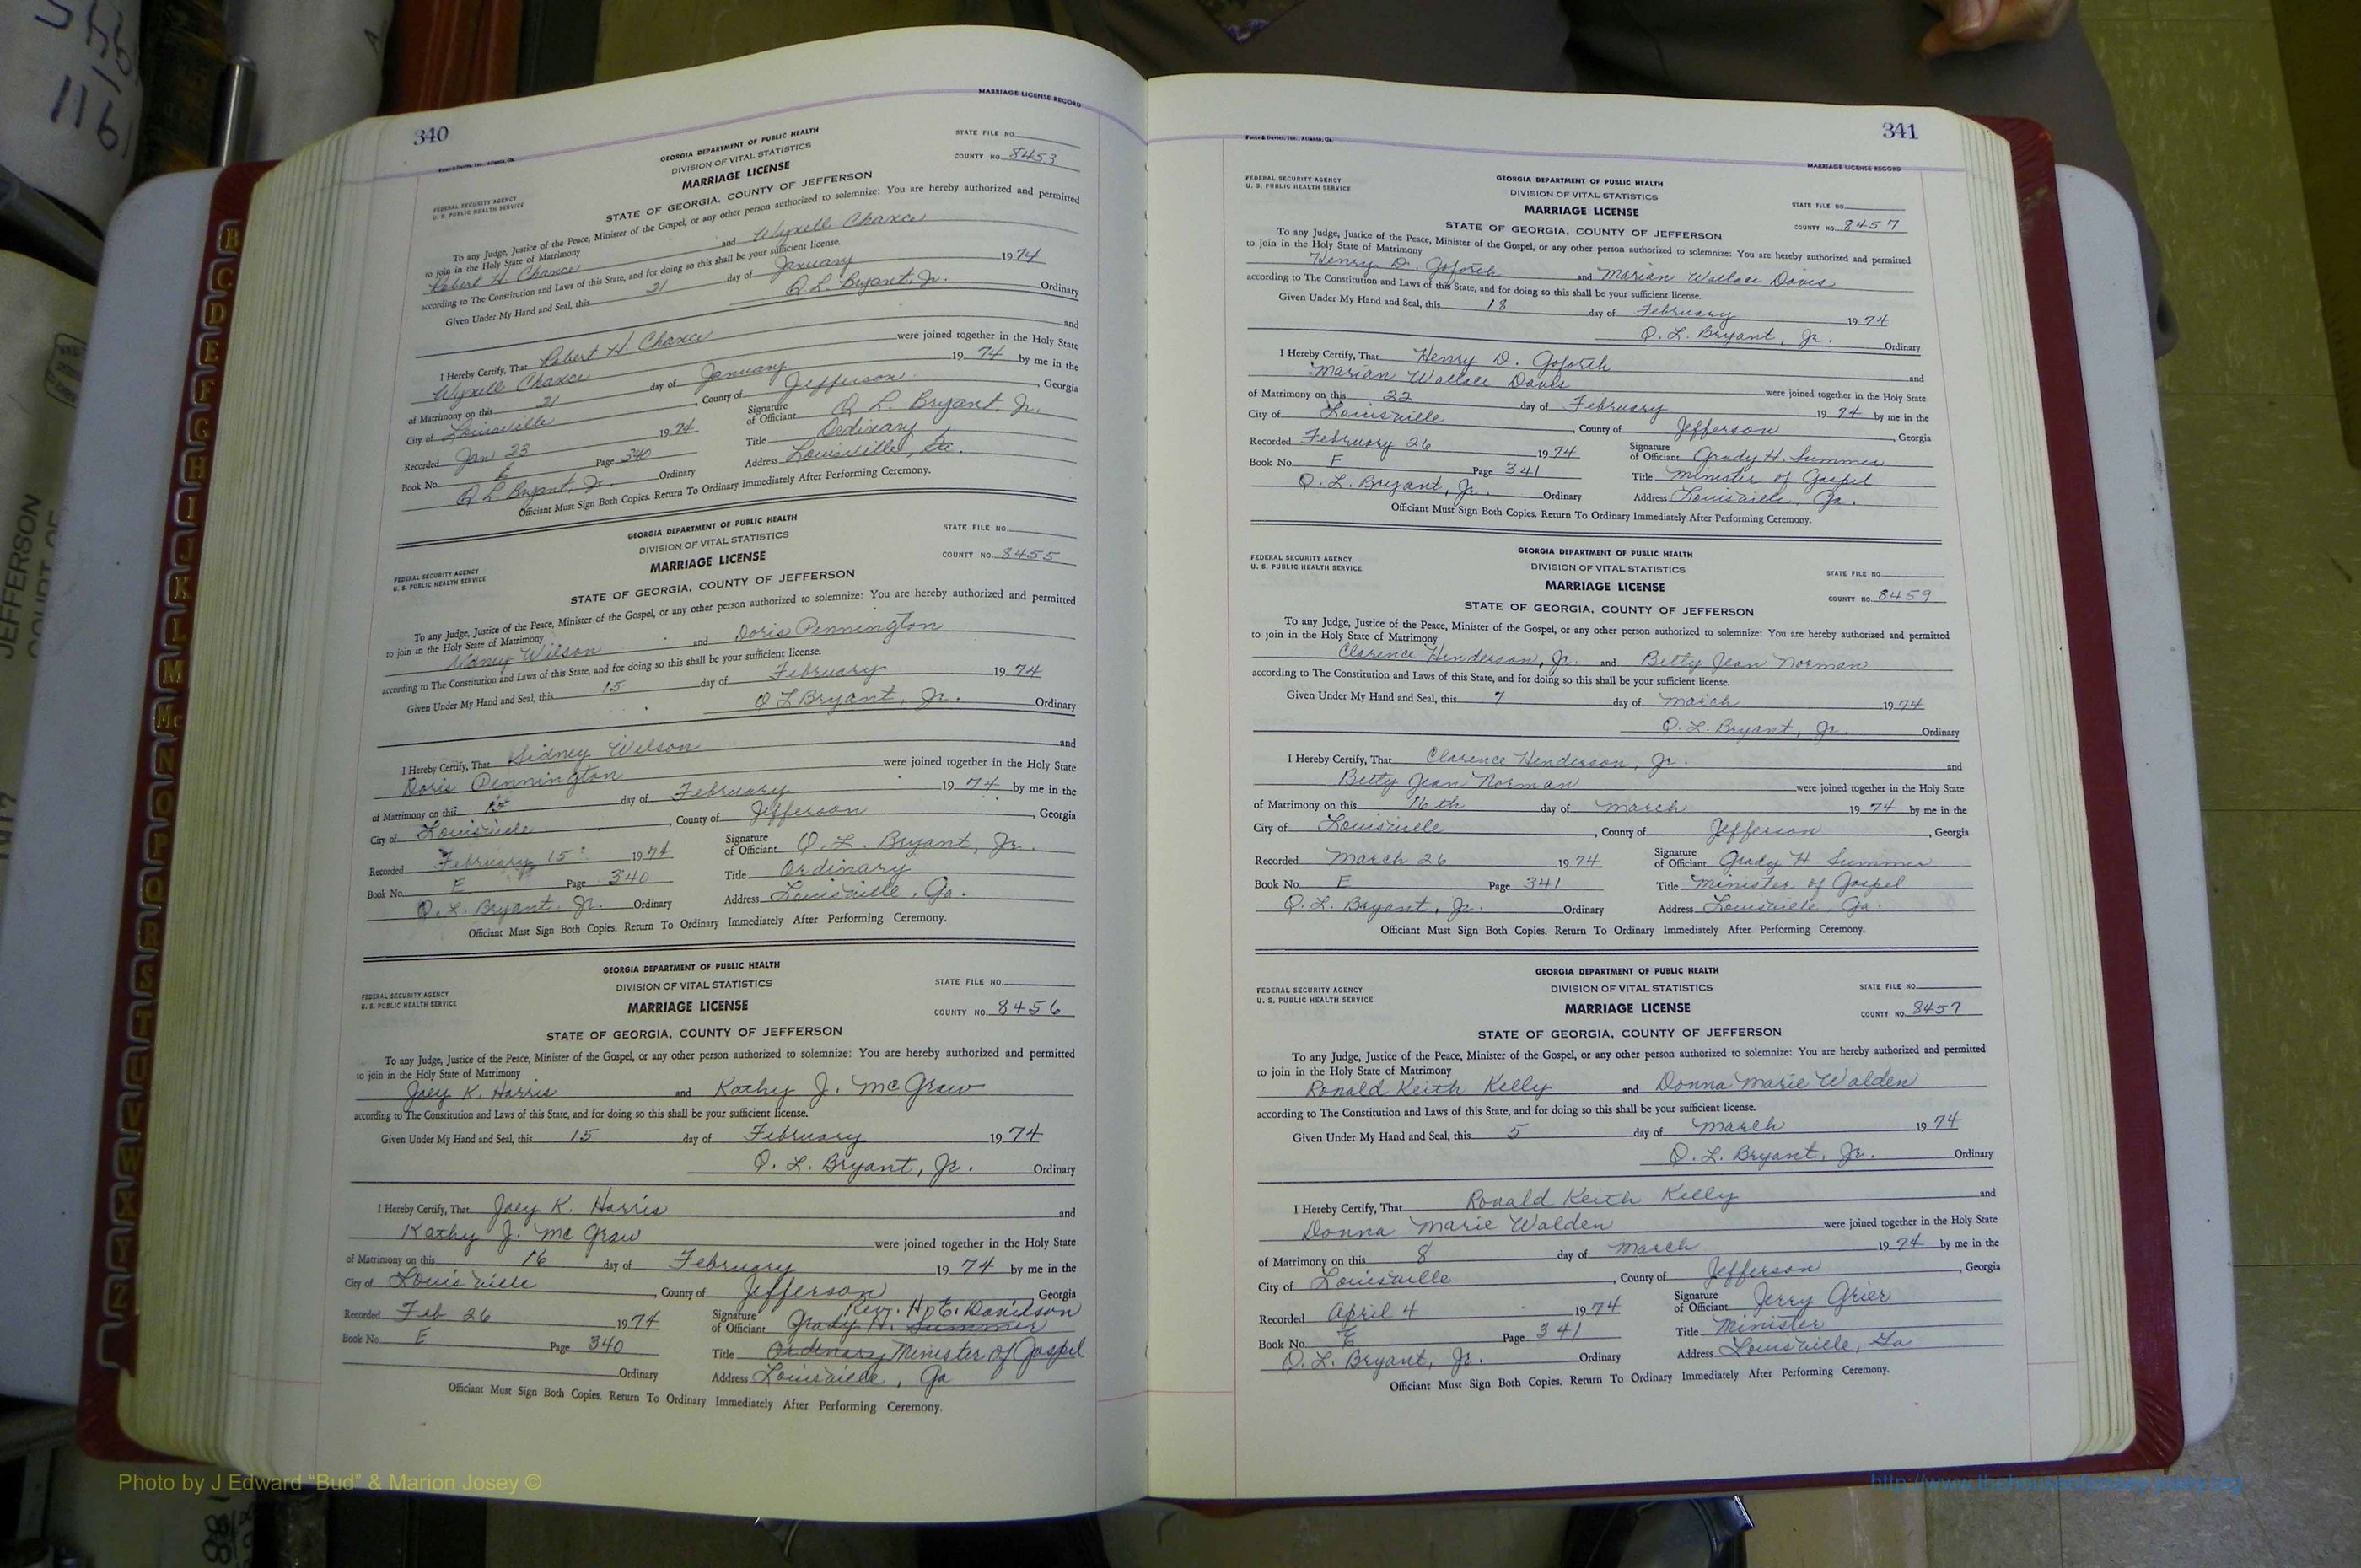 340
MARRIAGE LICENSE RECORD
GEORGIA DEPARTMENT OF PUBLIC HEALTH
STATE FILE NO.
DIVISION OF VITAL STATISTICS
COUNTY NO. 8453
MARRIAGE LICENSE
FEDERAL SECURITY AGENCY
U. S. PUBLIC HEALTH SERVICE
STATE OF GEORGIA, COUNTY OF JEFFERSON
To any Judge, Justice of the Peace, Minister of the Gospel, or any other person authorized to solemnize: You are hereby authorized and permitted
to join in the Holy State of Matrimony
Robert H. Chance and Wynell Chance
according to The Constitution and Laws of this State, and for doing so this shall be your sufficient license.
Given Under My Hand and Seal, this 21 day of January 1974
Q. L. Bryant, Jr. Ordinary
I Hereby Certify, That Robert H. Chance and
Wynell Chance were joined together in the Holy State
of Matrimony on this 21 day of January 1974 by me in the
City of Louisville, County of Jefferson, Georgia
Recorded Jan 23 1974 Signature of Officiant Q. L. Bryant, Jr.
Book No. E Page 340 Title Ordinary
Q L Bryant, Jr. Ordinary Address Louisville, Ga.
Officiant Must Sign Both Copies. Return To Ordinary Immediately After Performing Ceremony.
GEORGIA DEPARTMENT OF PUBLIC HEALTH
STATE FILE NO.
DIVISION OF VITAL STATISTICS
COUNTY NO. 8455
MARRIAGE LICENSE
FEDERAL SECURITY AGENCY
U. S. PUBLIC HEALTH SERVICE
STATE OF GEORGIA, COUNTY OF JEFFERSON
To any Judge, Justice of the Peace, Minister of the Gospel, or any other person authorized to solemnize: You are hereby authorized and permitted
to join in the Holy State of Matrimony
Sidney Wilson and Doris Pennington
according to The Constitution and Laws of this State, and for doing so this shall be your sufficient license.
Given Under My Hand and Seal, this 15 day of February 1974
Q L Bryant, Jr. Ordinary
I Hereby Certify, That Sidney Wilson and
Doris Pennington were joined together in the Holy State
of Matrimony on this 15 day of February 1974 by me in the
City of Louisville, County of Jefferson, Georgia
Recorded February 15 1974 Signature of Officiant Q. L. Bryant, Jr.
Book No. E Page 340 Title Ordinary
Q. L. Bryant, Jr. Ordinary Address Louisville, Ga.
Officiant Must Sign Both Copies. Return To Ordinary Immediately After Performing Ceremony.
GEORGIA DEPARTMENT OF PUBLIC HEALTH
STATE FILE NO.
DIVISION OF VITAL STATISTICS
FEDERAL SECURITY AGENCY
U. S. PUBLIC HEALTH SERVICE
MARRIAGE LICENSE
COUNTY NO. 8456
STATE OF GEORGIA, COUNTY OF JEFFERSON
To any Judge, Justice of the Peace, Minister of the Gospel, or any other person authorized to solemnize: You are hereby authorized and permitted
to join in the Holy State of Matrimony
Joey K. Harris and Kathy J. McGraw
according to The Constitution and Laws of this State, and for doing so this shall be your sufficient license.
Given Under My Hand and Seal, this 15 day of February 1974
Q. L. Bryant, Jr. Ordinary
I Hereby Certify, That Joey K. Harris and
Kathy J. McGraw were joined together in the Holy State
of Matrimony on this 16 day of February 1974 by me in the
City of Louisville, County of Jefferson, Georgia
Rev. H. E. Danielson
Recorded Feb 26 1974 Signature of Officiant Grady H. Summer
Book No. E Page 340 Title Ordinary Minister of Gospel
Ordinary Address Louisville, Ga
Officiant Must Sign Both Copies. Return To Ordinary Immediately After Performing Ceremony.
341
MARRIAGE LICENSE RECORD
FEDERAL SECURITY AGENCY
U. S. PUBLIC HEALTH SERVICE
GEORGIA DEPARTMENT OF PUBLIC HEALTH
DIVISION OF VITAL STATISTICS
MARRIAGE LICENSE
STATE FILE NO.
STATE OF GEORGIA, COUNTY OF JEFFERSON
COUNTY NO. 8457
To any Judge, Justice of the Peace, Minister of the Gospel, or any other person authorized to solemnize: You are hereby authorized and permitted
to join in the Holy State of Matrimony
Henry D. Goforth and Marian Wallace Davis
according to The Constitution and Laws of this State, and for doing so this shall be your sufficient license.
Given Under My Hand and Seal, this 18 day of February 1974
Q. L. Bryant, Jr. Ordinary
I Hereby Certify, That Henry D. Goforth and
Marian Wallace Davis were joined together in the Holy State
of Matrimony on this 22 day of February 1974 by me in the
City of Louisville, County of Jefferson, Georgia
Recorded February 26 1974 Signature of Officiant Grady H. Summer
Book No. E Page 341 Title Minister of Gospel
Q. L. Bryant, Jr. Ordinary Address Louisville, Ga.
Officiant Must Sign Both Copies. Return To Ordinary Immediately After Performing Ceremony.
FEDERAL SECURITY AGENCY
U. S. PUBLIC HEALTH SERVICE
GEORGIA DEPARTMENT OF PUBLIC HEALTH
DIVISION OF VITAL STATISTICS
STATE FILE NO.
MARRIAGE LICENSE
COUNTY NO. 8459
STATE OF GEORGIA, COUNTY OF JEFFERSON
To any Judge, Justice of the Peace, Minister of the Gospel, or any other person authorized to solemnize: You are hereby authorized and permitted
to join in the Holy State of Matrimony
Clarence Henderson, Jr. and Betty Jean Norman
according to The Constitution and Laws of this State, and for doing so this shall be your sufficient license.
Given Under My Hand and Seal, this 7 day of March 1974
Q. L. Bryant, Jr. Ordinary
I Hereby Certify, That Clarence Henderson, Jr. and
Betty Jean Norman were joined together in the Holy State
of Matrimony on this 16th day of March 1974 by me in the
City of Louisville, County of Jefferson, Georgia
Recorded March 26 1974 Signature of Officiant Grady H Summer
Book No. E Page 341 Title Minister of Gospel
Q. L. Bryant, Jr. Ordinary Address Louisville, Ga.
Officiant Must Sign Both Copies. Return To Ordinary Immediately After Performing Ceremony.
GEORGIA DEPARTMENT OF PUBLIC HEALTH
FEDERAL SECURITY AGENCY
U. S. PUBLIC HEALTH SERVICE
DIVISION OF VITAL STATISTICS
STATE FILE NO.
MARRIAGE LICENSE
COUNTY NO. 8457
STATE OF GEORGIA, COUNTY OF JEFFERSON
To any Judge, Justice of the Peace, Minister of the Gospel, or any other person authorized to solemnize: You are hereby authorized and permitted
to join in the Holy State of Matrimony
Ronald Keith Kelly and Donna Marie Walden
according to The Constitution and Laws of this State, and for doing so this shall be your sufficient license.
Given Under My Hand and Seal, this 5 day of March 1974
Q. L. Bryant, Jr. Ordinary
I Hereby Certify, That Ronald Keith Kelly and
Donna Marie Walden were joined together in the Holy State
of Matrimony on this 8 day of March 1974 by me in the
City of Louisville, County of Jefferson, Georgia
Recorded April 4 1974 Signature of Officiant Jerry Grier
Book No. E Page 341 Title Minister
Q. L. Bryant, Jr. Ordinary Address Louisville, Ga
Officiant Must Sign Both Copies. Return To Ordinary Immediately After Performing Ceremony.
B
C
D
E
F
G
H
I
J
K
L
M
Mc
N
O
P
Q
R
S
T
U
V
W
X
Y
Z
JEFFERSON
COURT OF
Photo by J Edward “Bud” & Marion Josey ©